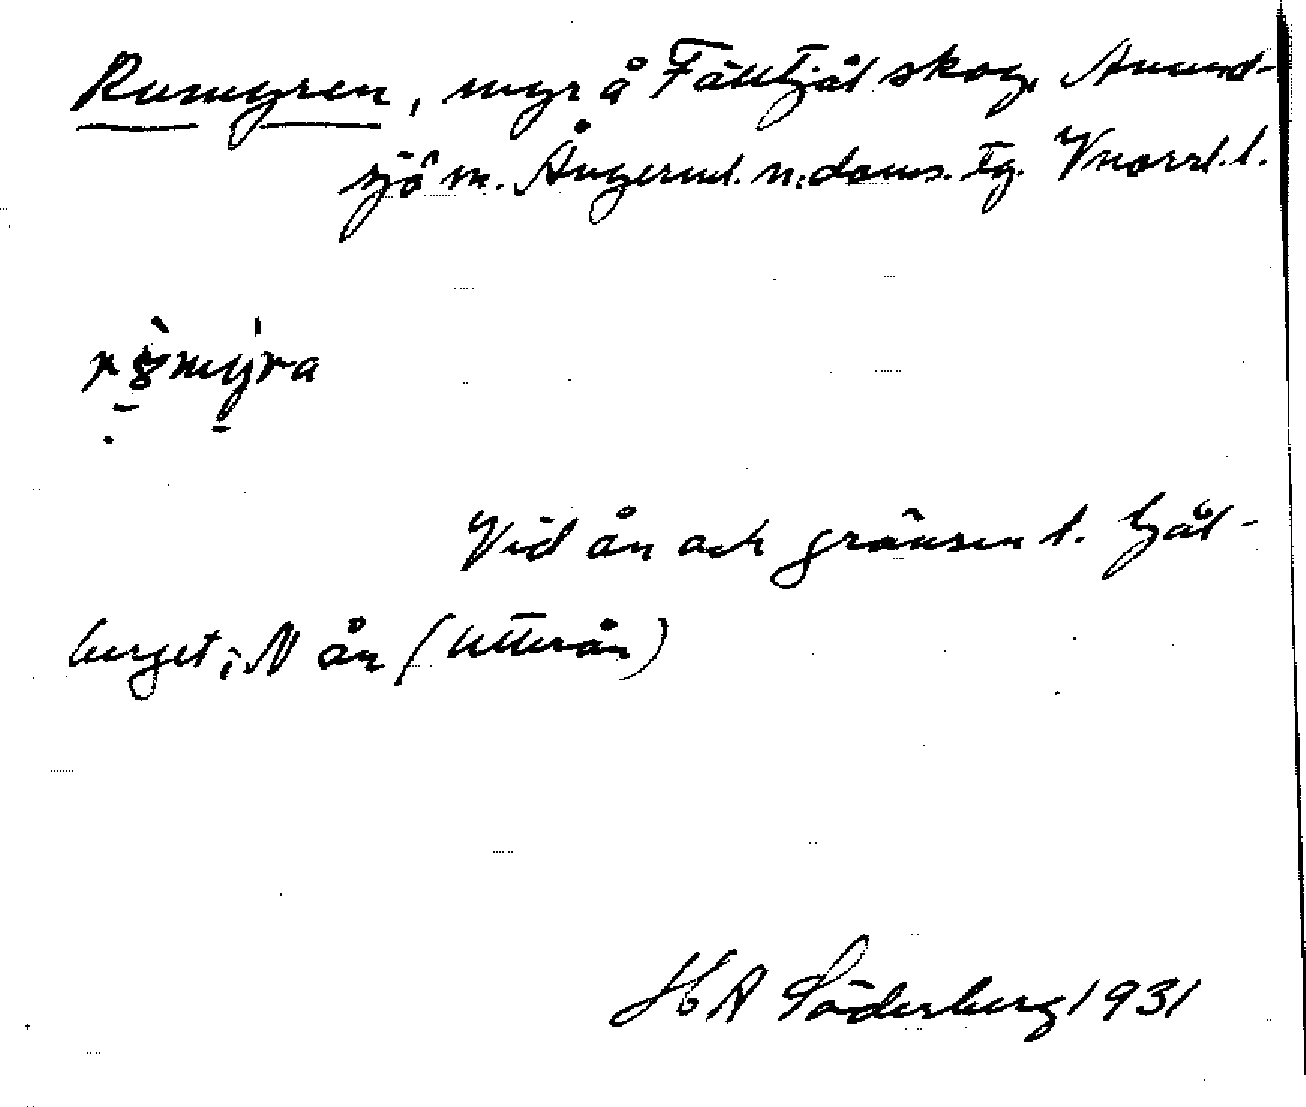 Rumyren, myr å Fälltjäl skog, Anund-
sjö sn. Ångerml. n. doms. tg. Vnorrl. l.
Vid ån och gränsen t. Tjäl-
berget, N ån (Utterån)
H A Söderberg 1931